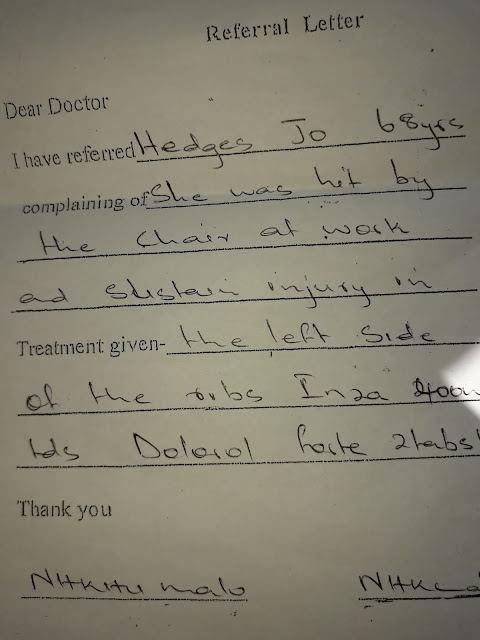 Referral Letter
Dear Doctor
I have referred Hedges Jo 68yrs
complaining of She was hit by
the chair at work
ad sustain injury in
Treatment given- the left side
of the ribs Inza 400m
tds Dolorol forte 2tabs
Thank you
malo